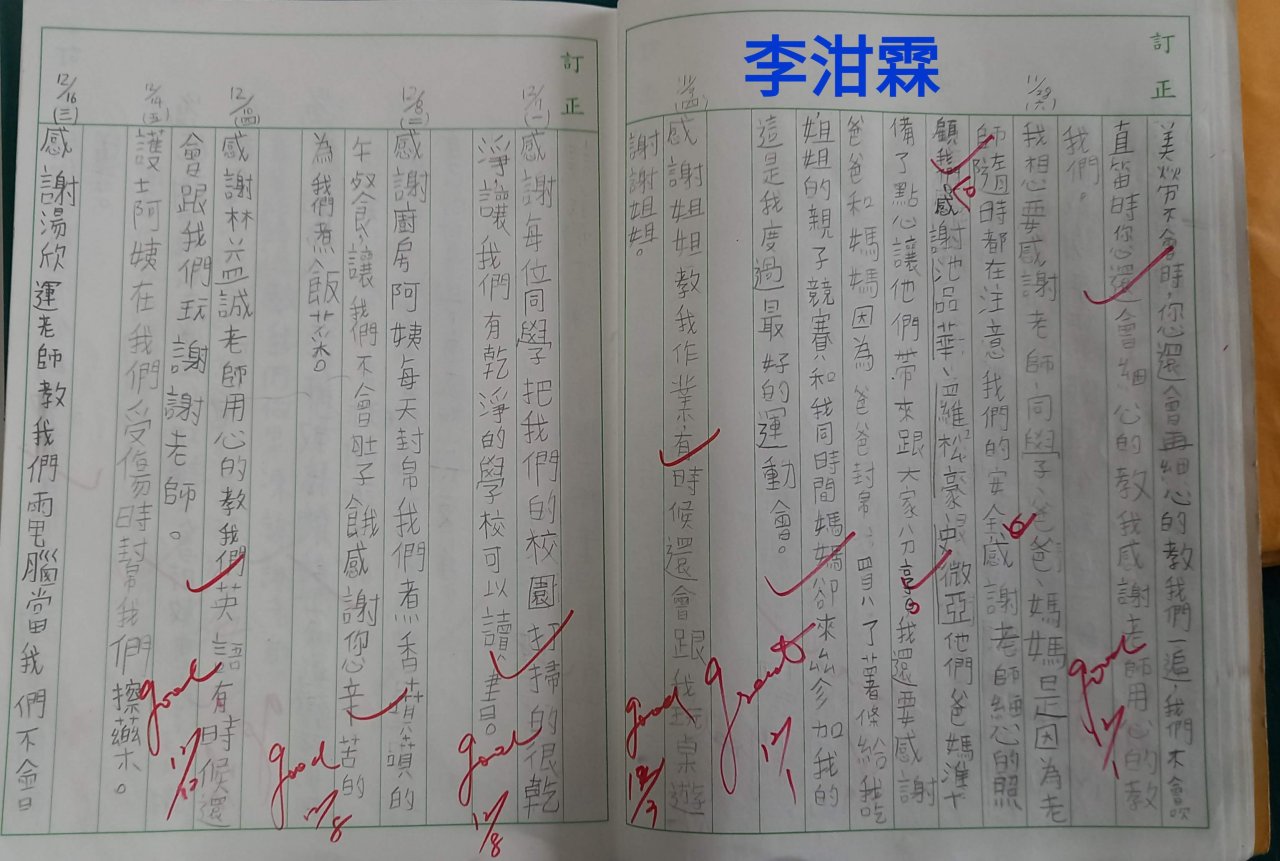 李泔霖
訂正
美勞不會時,您還會再細心的教我們一遍,我們不會吹
直笛時您還會細心的教我感謝老師用心的教
我們。
good 12/1
11/29(六)
我想要感謝老師、同學、爸爸、媽媽是因為老
師隨時都在注意我們的安全感謝老師細心的照
顧我感謝池品華、血維松豪跟史微亞他們爸媽准
備了點心讓他們帶來跟大家分享。我還要感謝
爸爸和媽媽因為爸爸封帛了薯條給我吃
姐姐的親子競賽、和我同時間媽媽卻來參加我的
這是我度過最好的運動會。
Great 12/1
感謝姐姐教我作業有時候還會跟我玩桌遊
謝謝姐姐。
good 12/7
訂正
12/1(一)
感謝每位同學把我們的校園打掃的很乾
淨讓我們有乾淨的學校可以讀書。
good 12/8
12/8(二)
感謝廚房阿姨每天封帛我們煮香噴噴的
午餐讓我們不會肚子餓感謝你心辛苦的
為我們煮飯菜。
good 12/8
12/10(四)
感謝林益誠老師用心的教我們英語有時候還
會跟我們玩謝謝老師。
good 12/12
12/14(五)
護士阿姨在我們受傷時封帛我們擦藥。
12/16(三)
感謝湯欣運老師教我們電腦當我們不會